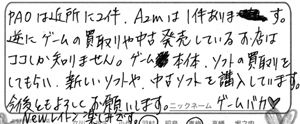 PAOは近所に2件、A2mは1件あります。
逆にゲームの買取りや中古発売しているお店は
ココしか知りません。ゲーム本体、ソフトの買取りを
してもらい、新しいソフトや、中古ソフトを購入しています。
今後ともよろしくお願いします。
ニックネーム ゲームバカ♥
Newレイトン楽しみです。